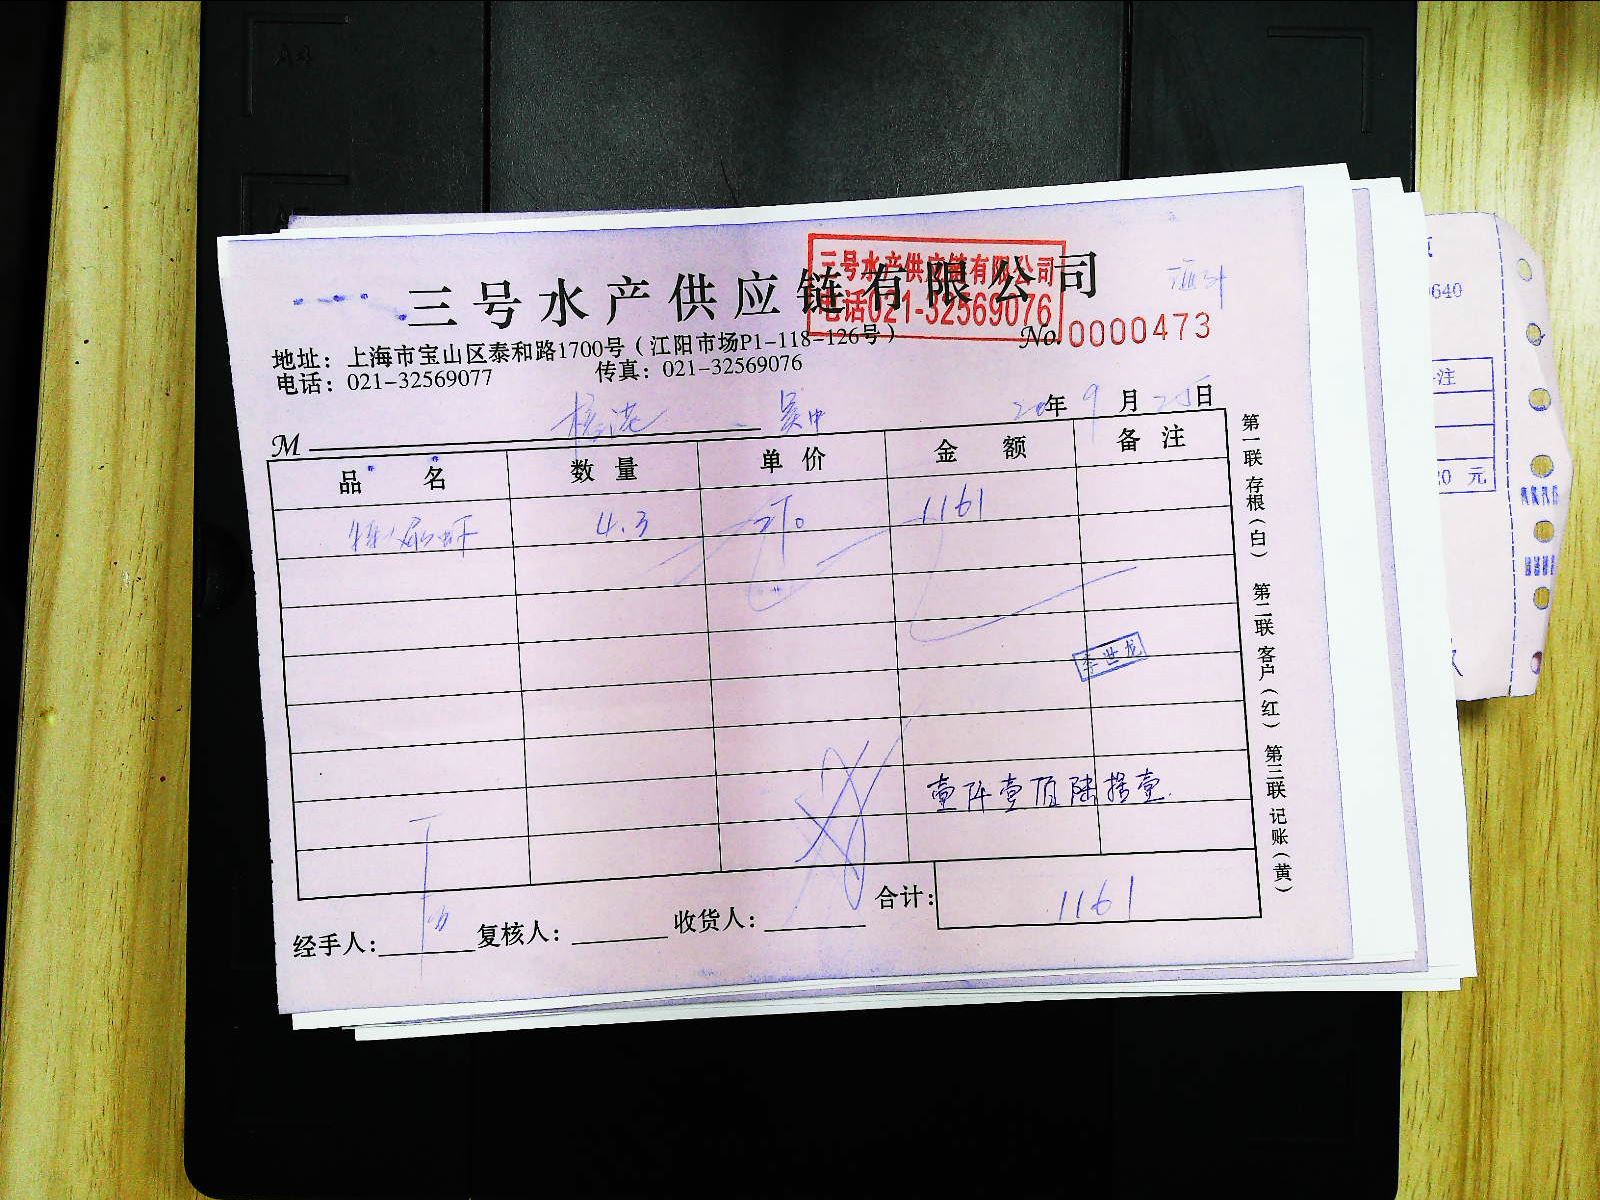 三号水产供应链有限公司
三号水产供应链有限公司
电话021-32569076
No.0000473
地址：上海市宝山区泰和路1700号（江阳市场P1-118-126号）
电话：021-32569077 传真：021-32569076
M 吴中 20年9月25日
品名 数量 单价 金额 备注
4.3 270 1161
李世龙
壹仟壹佰陆拾壹
合计： 1161
经手人： 复核人： 收货人：
第一联 存根（白） 第二联 客户（红） 第三联 记账（黄）
640
注
0 元